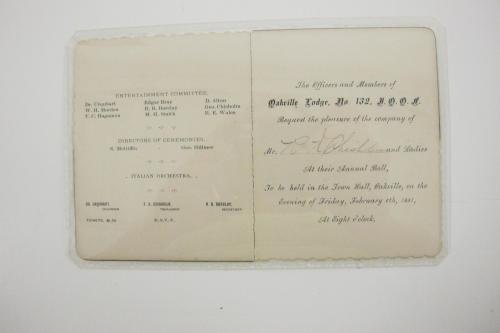 ENTERTAINMENT COMMITTEE.
Dr. Urquhart Edgar Bray D. Alton
W. H. Morden B. H. Barclay Geo. Chisholm
F. C. Hagaman M. H. Smith R. E. Wales
DIRECTORS OF CEREMONIES.
S. Metcliffe Geo. Hillmer
ITALIAN ORCHESTRA.
DR. URQUHART,
CHAIRMAN
TREASURER
SECRETARY
R.S.V.P.
The Officers and Members of
Oakville Lodge, No. 132, I.O.O.F.
Request the pleasure of the company of
Mr. and Ladies
At their Annual Ball,
To be held in the Town Hall, Oakville, on the
Evening of Friday, February 6th, 1891,
At Eight o'clock.